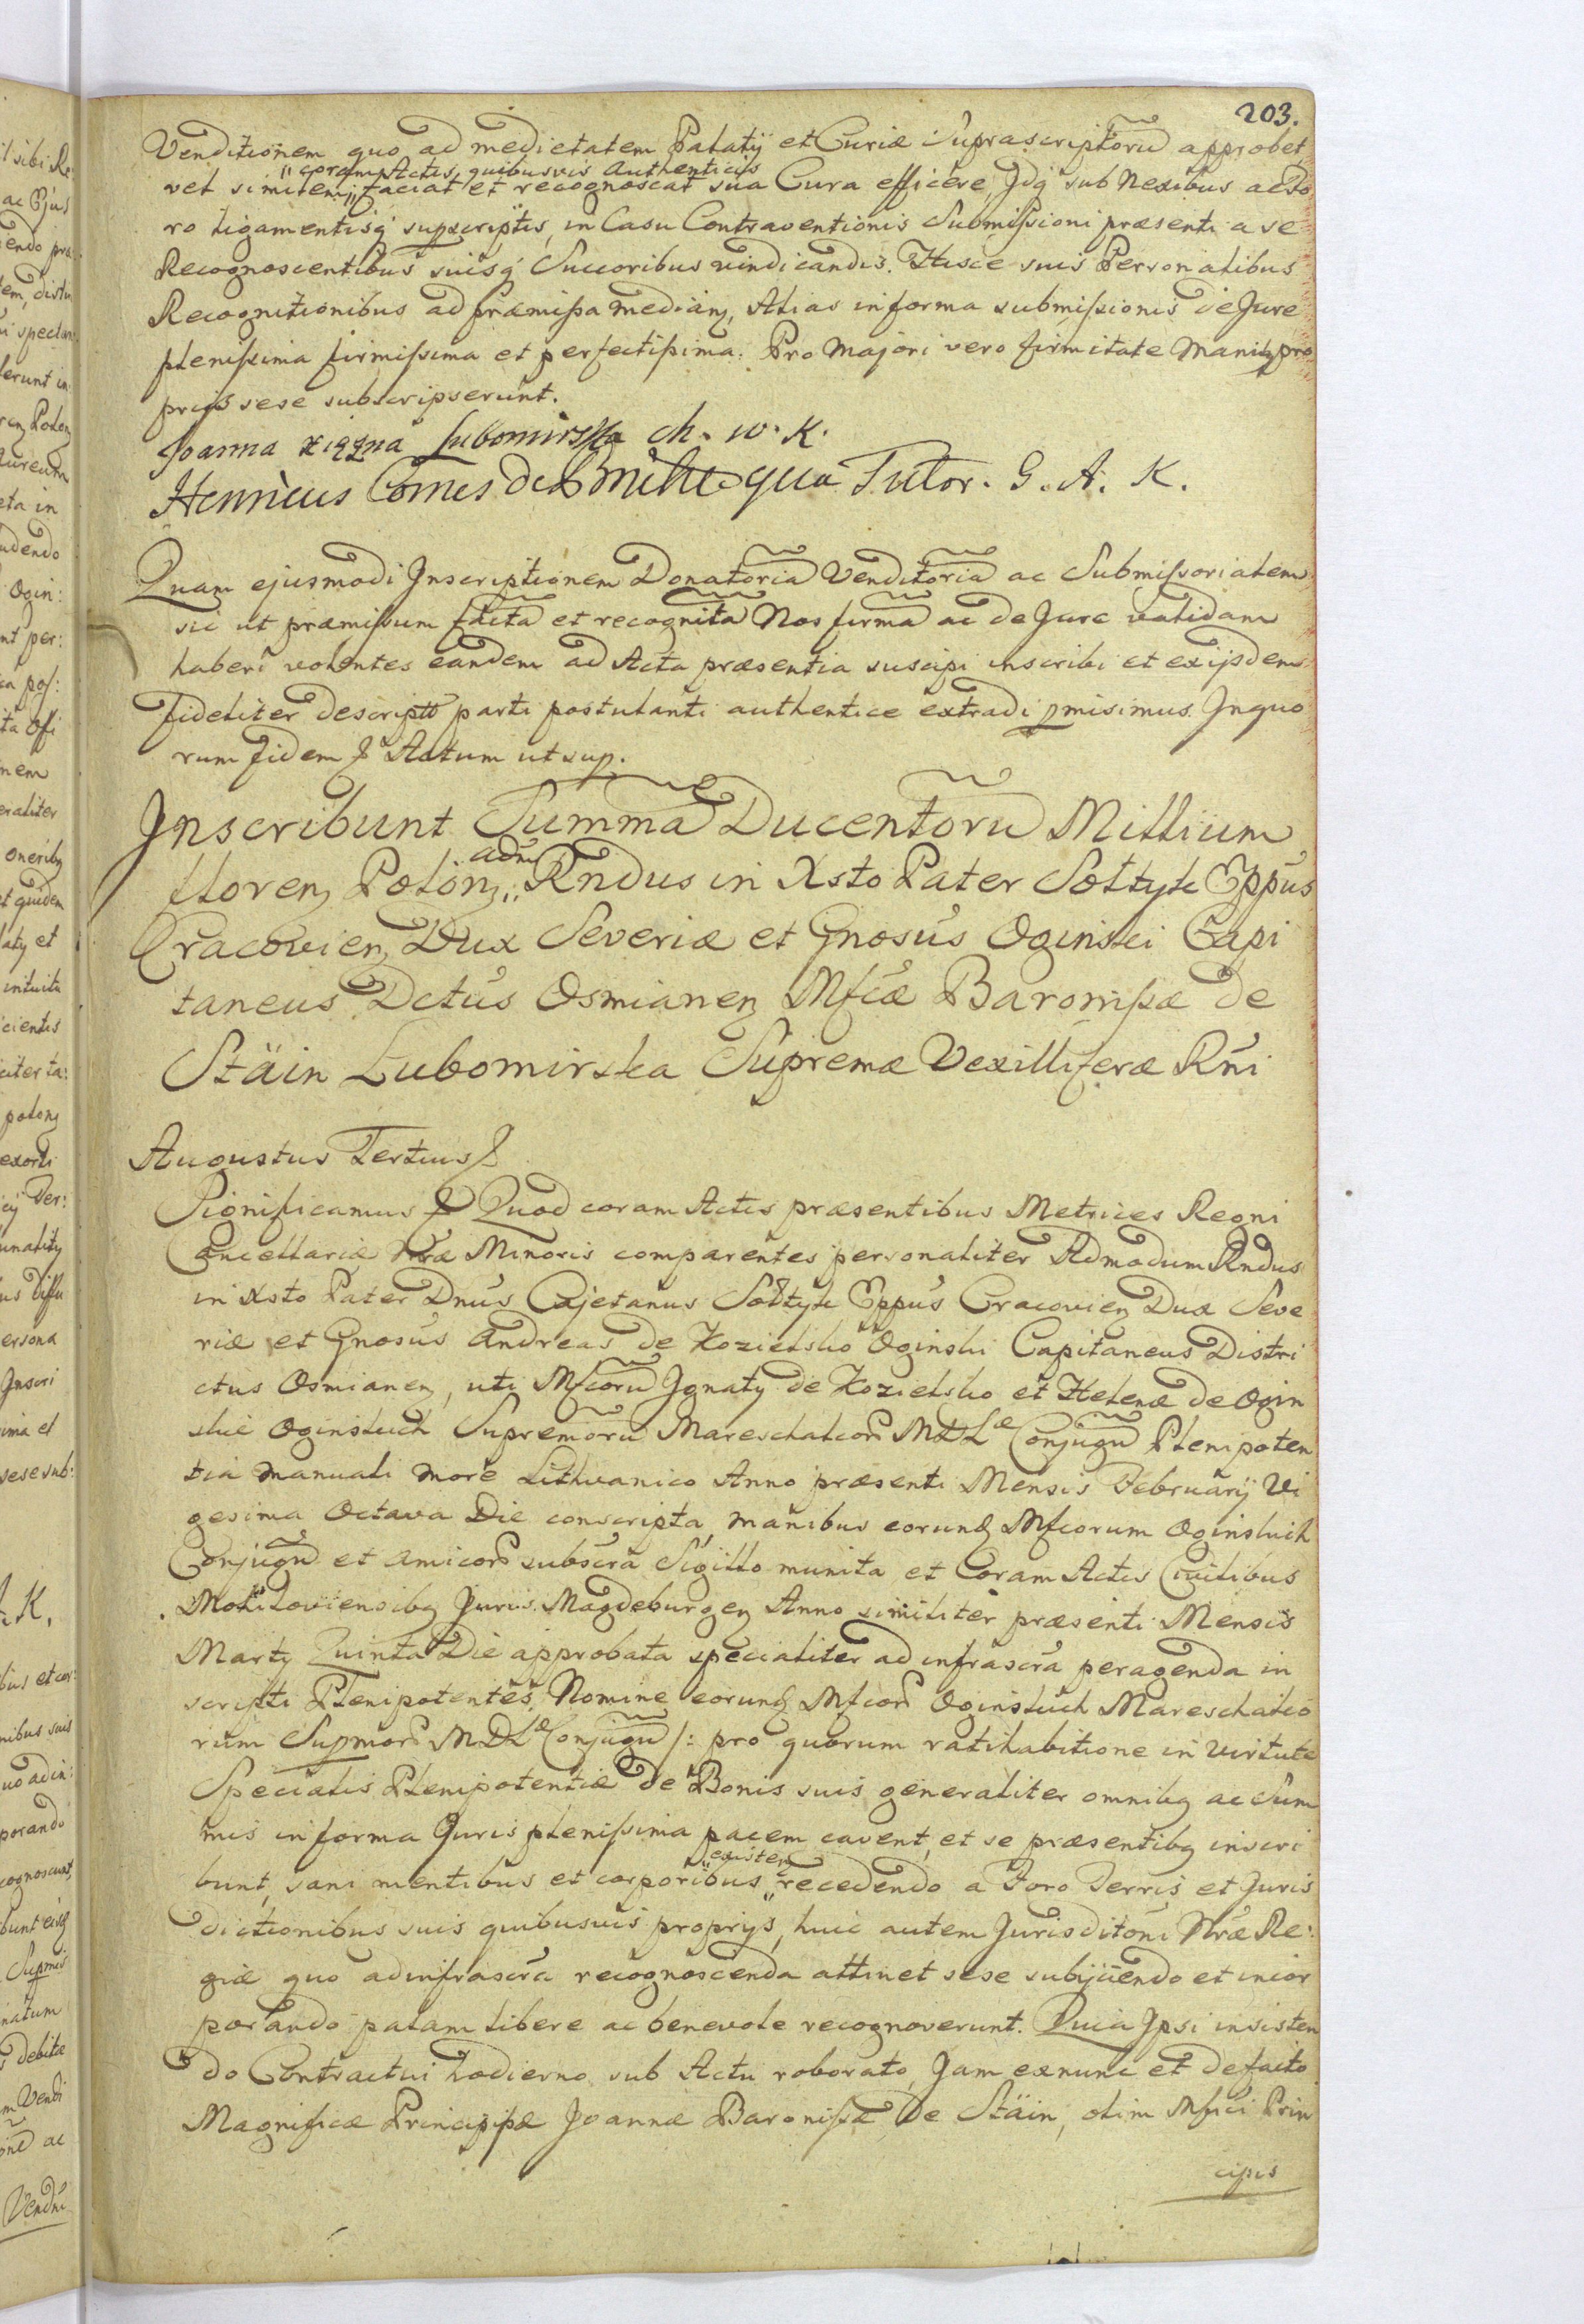 203.
Venditionem quo ad medietatem Palatÿ et Curiæ Suprascriptorũ approbet
coram Actis quibusvis Authenticis
vel similem faciat et recognoscat sua Cura efficere, Jdq̃ sub Nexibus ac Fo
ro ligamentisq̃ supscriptis, in Casu Contraventionis Submissioni præsenti a se
Recognoscentibus suisq̃ Succoribus vindicandis. Hisce suis Personalibus
Recognitionibus ad præmissa median, Alias in forma submissionis de Jure
plenissima firmissima et perfectissima. Pro Majori vero firmitate Manibq pro
prijs sese subscripserunt.
Joanna xiężna Lubomirska ch. w. K.
Henricus Comes de Brühl qua Tutor. G. A. K.
Quam ejusmodi Jnscriptionem Donatoriã Venditoriã ac Submissorialem
sic ut præmissum factã et recognitã Nos firmã ac de Jure validam
haberi volentes eandem ad Acta præsentia suscipi inscribi et ex ijsdem
fideliter descriptã parti postulanti authentice extradi pmisimus. Jn quo
rum fidem & Actum ut sup.
Jnscribunt Summã Ducentorũ Millium
floren Polon, adm Rndus in Xsto Pater Sołtyk Eppus
Cracovien Dux Severiæ et Gnosus Oginski Capi
taneus Dctus Osmianen Mfcæ Baronissæ de
Stäin Lubomirska Supremæ Vexilliferæ Rni
Augustus Tertius &
Significamus & Quod coram Actis præsentibus Metrices Regni
Cancellariæ Nræ Minoris comparentes personaliter Admodum Rndus
in Xsto Pater Dnus Cajetanus Sołtyk Eppus Cracovien Dux Seve
riæ et Gnosus Andreas de Kozielsko Oginski Capitaneus Distri
ctus Osmianen, uti Mfcorũ Jgnatÿ de Kozielsko et Helenæ de Ogin
skie Oginskich Supremorũ Mareschalcor M D Læ Conjugũ Plenipoten
tia manuali more Lithvanico Anno præsenti Mensis Februarÿ Vi
gesima Octava Die conscripta, manibus eorund Mfcorum Oginskich
Conjugũ et amicor subscra Sigillo munita et Coram Actis Civilibus
Mohiloviensibq Juris Magdeburgen Anno similiter præsenti Mensis
Martÿ Quinta Die approbata specialiter ad infrascra peragenda in
scripti Plenipotentes, Nomine eorund Mfcor Oginskich Mareschalco
rum Supmor M D Læ Conjugũ /: pro quorum ratihabitione in virtute
Specialis Plenipotentiæ de Bonis suis generaliter omnibq ac Sum
mis in forma Juris plenissima pacem cavent, et se præsentibq inscri
bunt, sani mentibus et corporibus existen recedendo a Foro Terris et Juris
dictionibus suis quibusvis proprijs, huic autem Jurisditoni Nræ Re:
giæ quo ad infrascra recognoscenda attinet sese subÿciendo et incor
porando palam libere ac benevole recognoverunt. Quia Jpsi insisten
do Contractui hodierno sub Actu roborato, Jam exnunc et de facto
Magnificæ Principissæ Joannæ Baronissæ de Stäin, olim Mfici Prin
cipis